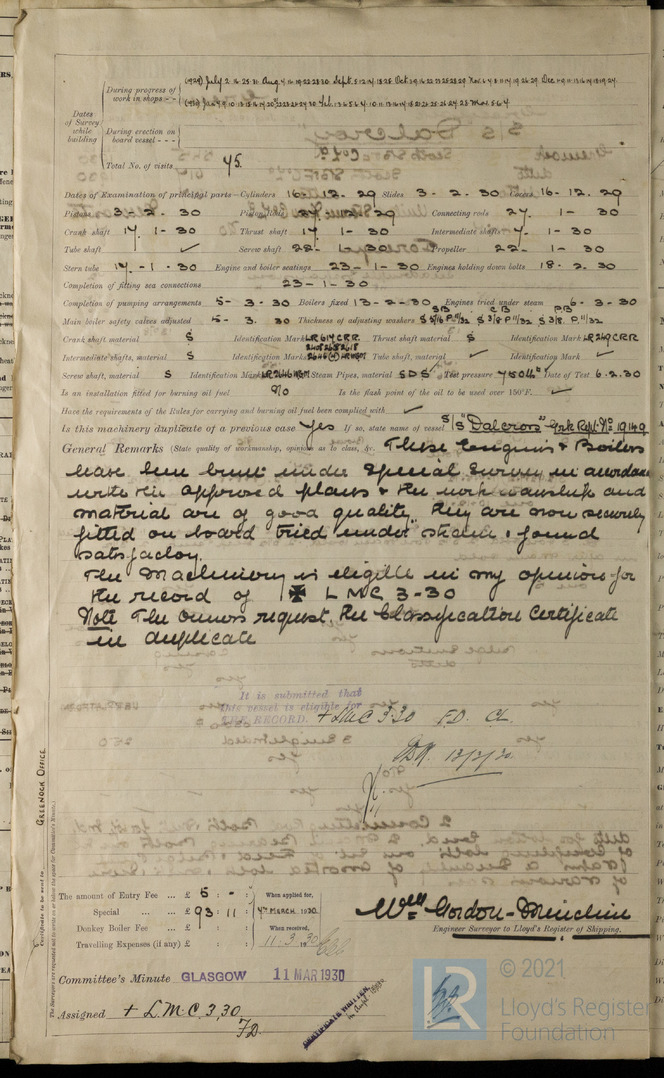 During progress of work in shops - -
(1929) July 2. 16. 25. 31. Aug 4. 16. 19. 22. 28. 30. Sept. 5. 12. 14. 18. 25. Oct. 29. 16. 22. 23. 25. 28. 29. Nov. 6. 4. 8. 11. 14. 19. 26. 29. Dec. 1. 9. 11. 13. 16. 17. 18. 19. 24.
Dates of Survey while building
During erection on board vessel - - -
Total No. of visits 45.
Dates of Examination of principal parts—Cylinders 16. 12. 29 Slides 3. 2. 30 Covers 16. 12. 29
Pistons 3. 2. 30 Piston Rods Connecting rods 27. 1. 30
Crank shaft 17. 1. 30 Thrust shaft 17 1. 30 Intermediate shafts 7. 1. 30
Tube shaft ✓ Screw shaft 22. 1. 30 Propeller 22. 1. 30
Stern tube 17. 1. 30 Engine and boiler seatings 23. 1. 30 Engines holding down bolts 18. 2. 30
Completion of fitting sea connections 23. 1. 30
Completion of pumping arrangements 5. 3. 30 Boilers fixed 13. 2. 30 Engines tried under steam 6. 3. 30
Main boiler safety valves adjusted 5. 3. 30 Thickness of adjusting washers SB S 5/16 P 11/32 CB S 3/8 P 11/32 PB S 3/8 P 11/32
Crank shaft material S Identification Mark LR 617 CRR Thrust shaft material S Identification Mark LR 249 CRR
Intermediate shafts, material S Identification Marks Tube shaft, material ✓ Identification Mark ✓
Screw shaft, material S Identification Mark LR 2646 HGM Steam Pipes, material SDS Test pressure 750 lbs Date of Test 6. 2. 30
Is an installation fitted for burning oil fuel No Is the flash point of the oil to be used over 150°F. ✓
Have the requirements of the Rules for carrying and burning oil fuel been complied with ✓
Is this machinery duplicate of a previous case Yes If so, state name of vessel S/S "Dalcross" Grk Rept. No 19149
General Remarks (State quality of workmanship, opinions as to class, &c. These Engines & Boilers
have been built under Special Survey in accordance
with the approved plans & the workmanship and
material are of good quality. they are now securely
fitted on board tried under steam & found
satisfactory.
The Machinery is eligible in my opinion for
the record of ✠ LMC 3-30
Note The owners request the Classification Certificate
in duplicate
It is submitted that
this vessel is eligible for
THE RECORD. + LMC 3.30 FD. CL.
13/3/30
GREENOCK OFFICE
Certificate to be sent to
The Surveyors are requested not to write on or below the space for Committee's Minute.
The amount of Entry Fee ... £ 5 : - :
Special ... ... £ 93 : 11 :
Donkey Boiler Fee ... £ : :
Travelling Expenses (if any) £ : :
When applied for,
4th MARCH 1930
When received,
11. 3. 1930
Wm Gordon-Minchin
Engineer Surveyor to Lloyd's Register of Shipping.
Committee's Minute GLASGOW 11 MAR 1930
Assigned + L.M.C 3,30
F.D.
CERTIFICATE WRITTEN
LR
© 2021
Lloyd's Register
Foundation